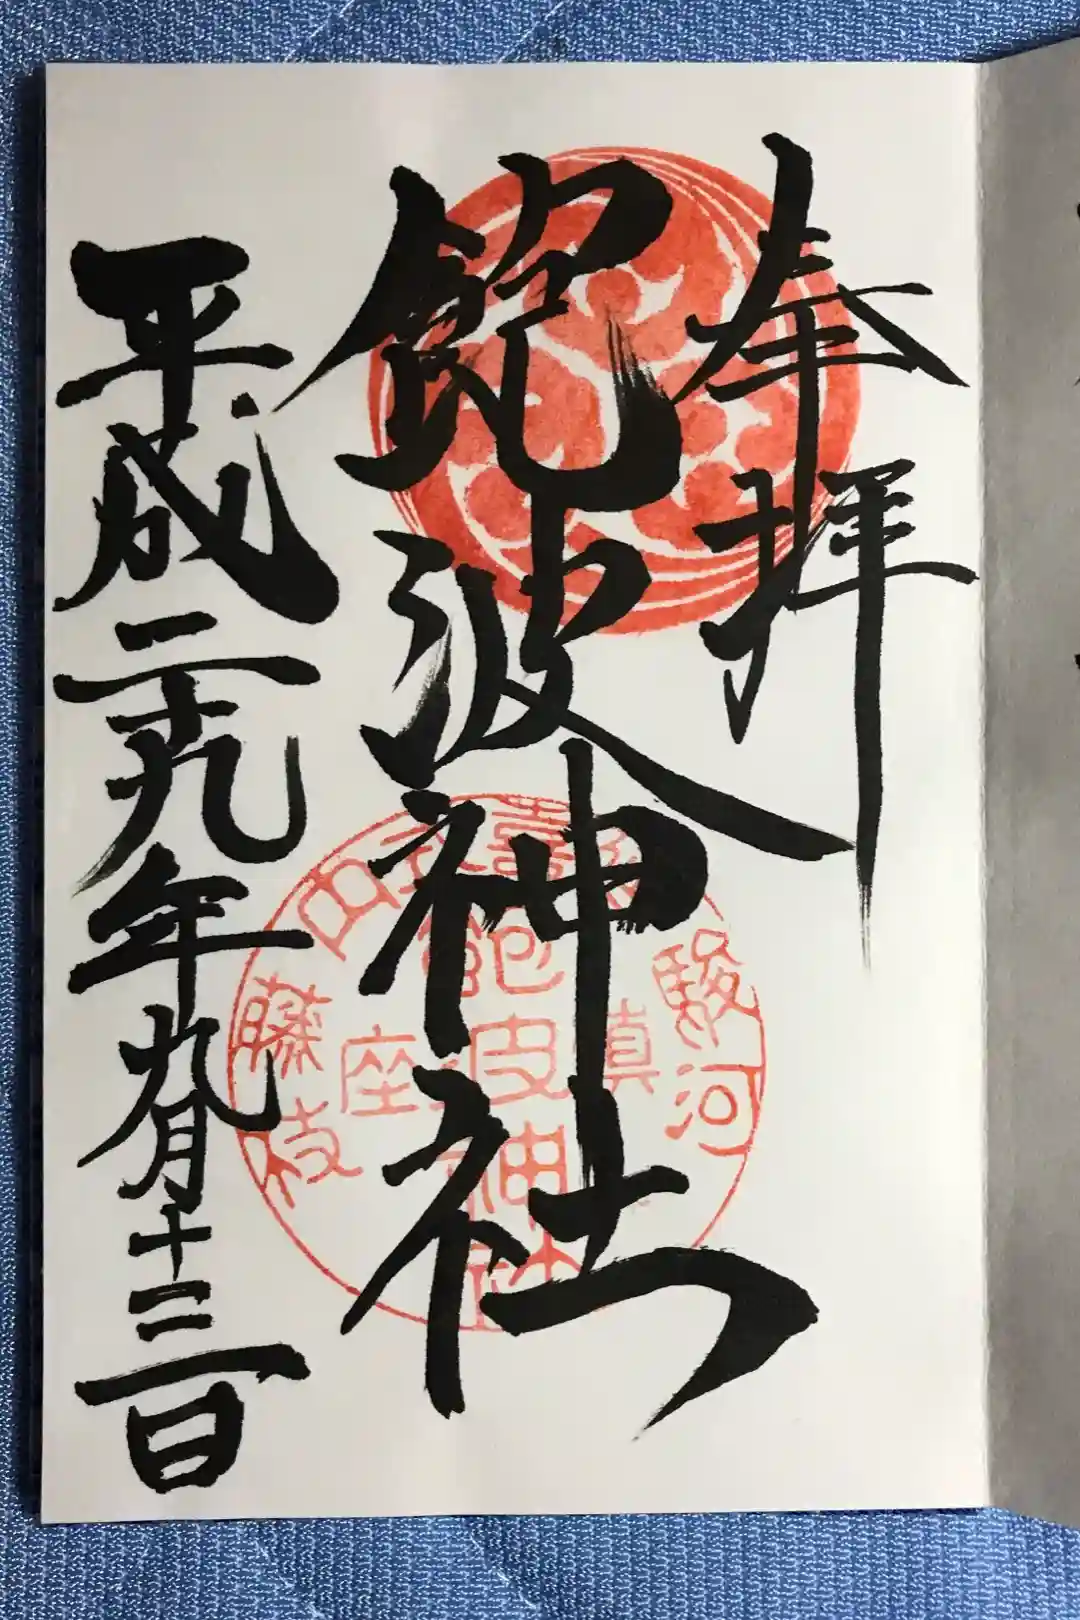 奉拝
飽波神社
平成二十九年九月十三日
喜式内
駿河
藤枝
鎮座
飽波神社